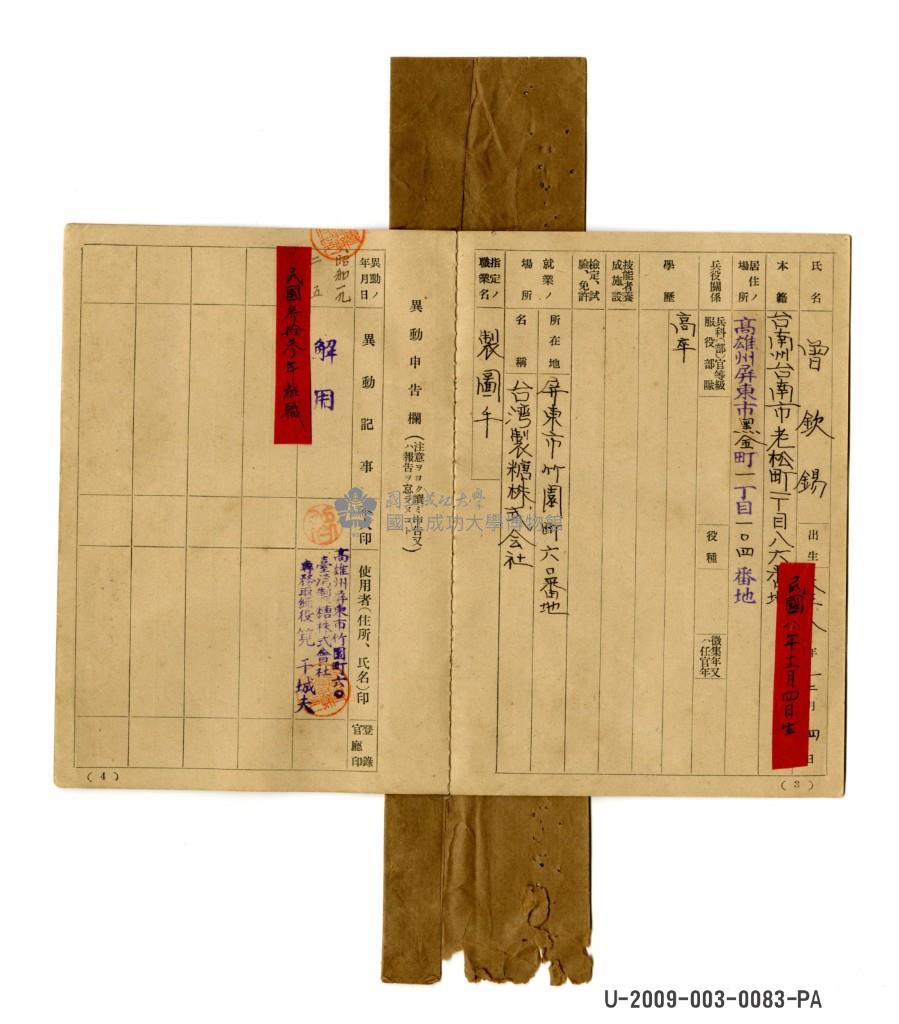 氏名 曾欽錫
出生 年 月 四日
民國八年十二月四日生
本籍 台南州台南市老松町一丁目八六番地
居住ノ場所 高雄州屏東市黑金町一丁目一〇四番地
兵役關係 兵科(部)官等級 服役部隊 役種 徵集年又ハ任官年
學歷 高卒
技能者養成施設
檢定、試驗、免許
就業ノ場所 所在地 屏東市竹園町六〇番地
名稱 台湾製糖株式会社
指定ノ職業名 製圖手
(3)
異動申告欄(注意ヲヨク讀ミ申告又ハ報告ヲ怠ラヌコト)
異動ノ年月日 異動記事 本人印 使用者(住所、氏名)印 登錄官廳印
昭和一九
二 五
解用
高雄州屏東市竹園町六〇
臺湾製糖株式會社
專務取締役 筧干城夫
民國參拾參年離職
(4)
國立成功大學
國立成功大學博物館
U-2009-003-0083-PA